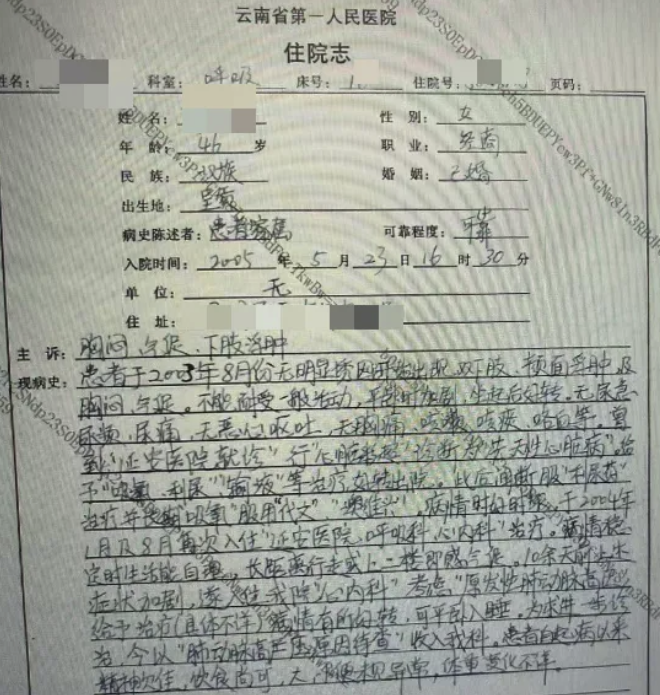 云南省第一人民医院
住院志
姓名： 科室：呼吸 床号：1 住院号： 页码：
姓 名： 性 别：女
年 龄：46 岁 职 业：经商
民 族：汉族 婚 姻：已婚
出生地：
病史陈述者：患者家属 可靠程度：可靠
入院时间：2005 年 5 月 23 日 16 时 30 分
单 位：无
住 址：
主 诉：胸闷、气促、下肢浮肿
现病史：患者于2003年8月份无明显诱因开始出现双下肢、颜面浮肿，及
胸闷、气促。不能耐受一般活动，平卧时加剧，坐起后好转。无尿急
尿频、尿痛，无恶心呕吐，无胸痛、咳嗽、咳痰、咯血等。曾
到"延安医院就诊"行"心脏彩超"诊断为"先天性心脏病"给
予"吸氧、利尿""输液"等治疗好转出院。此后间断服"利尿药"
治疗并长期"吸氧"服用代文" 病情时好时坏，于2004年
1月及8月再次入住"延安医院呼吸科、心内科"治疗。病情稳
定时生活能自理，长距离行走或上二楼即感气促。10余天前上述
症状加剧，遂入住我院"心内科"考虑"原发性肺动脉高压"
给予治疗(具体不详)病情有所好转，可平卧入睡。为求进一步诊
治，今以"肺动脉高压原因待查"收入我科。患者自起病以来
精神欠佳，饮食尚可，大小便未见异常，体重变化不详。